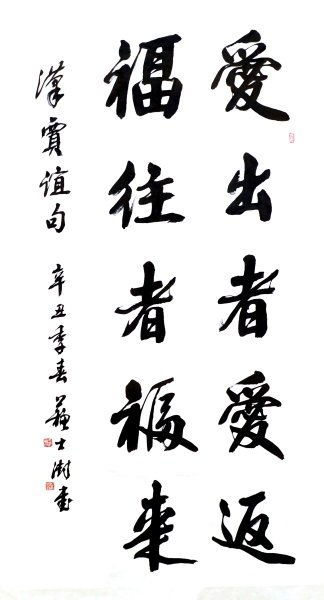 愛出者愛返
福往者福來
漢賈誼句 辛丑季春 蘇士澍書